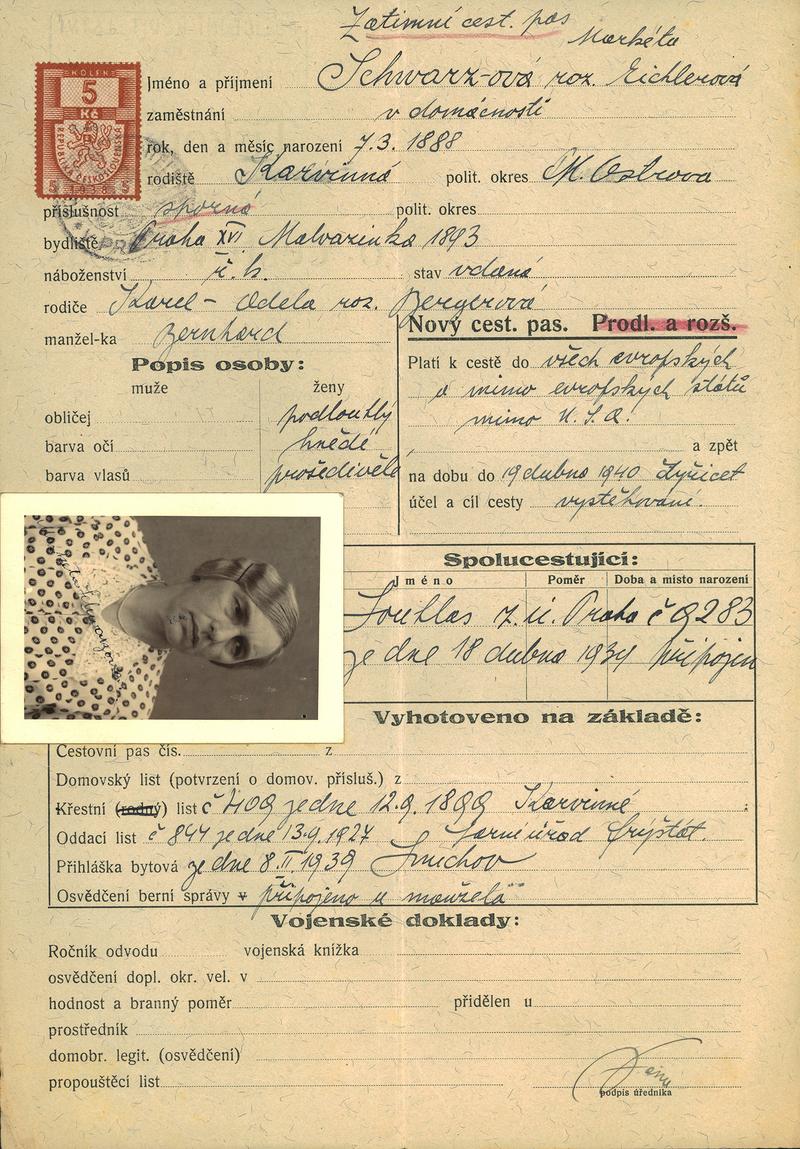 Zatímní cest. pas
Markéta
KOLEK
5
Kč
REPUBLIKA ČESKOSLOVENSKÁ
5 1938 5
Jméno a příjmení Schwarz-ová roz. Eichlerová
zaměstnání v domácnosti
rok, den a měsíc narození 7.3. 1888
rodiště Karvinná polit. okres M. Ostrava
příslušnost sporná polit. okres
bydliště Praha XVI Malvazinka 1893
náboženství ř. k. stav vdaná
rodiče Karel - Adela roz. Bergerová
manžel-ka Bernhard
Nový cest. pas. Prodl. a rozš.
Popis osoby:
muže ženy
obličej podlouhlý
barva očí hnědé
barva vlasů prošedivělé
Platí k cestě do všech evropských
a mimo evropských států
mimo U.S.A.
a zpět
na dobu do 19 dubna 1940 čtyřicet
účel a cíl cesty vystěhování.
Spolucestující:
Jméno Poměr Doba a místo narození
Souhlas ž. ú. Praha č 9283
ze dne 18 dubna 1939 připojen
Vyhotoveno na základě:
Cestovní pas čís. z
Domovský list (potvrzení o domov. přísluš.) z
Křestní (rodný) list č 409 ze dne 12.9. 1899 Karvinné
Oddací list č 844 ze dne 13.9.1927 úřad Fryštát.
Přihláška bytová ze dne 8.II.1939 Smíchov
Osvědčení berní správy v připojeno u manžela
Vojenské doklady:
Ročník odvodu vojenská knížka
osvědčení dopl. okr. vel. v
hodnost a branný poměr přidělen u
prostředník
domobr. legit. (osvědčení)
propouštěcí list
podpis úředníka